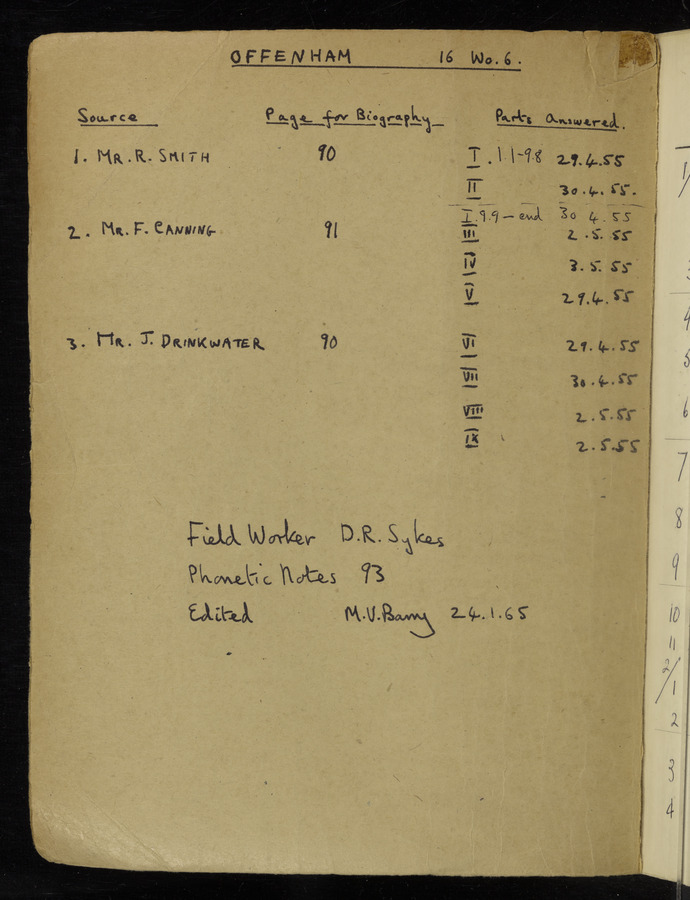 OFFENHAM 16 Wo. 6.
Source Page for Biography Parts Answered.
1. MR. R. SMITH 90 I. 1.1-9.8 29.4.55
II 30.4.55.
I. 9.9 – end 30 4.55
2. MR. F. CANNING 91 III 2.5.55
IV 3.5.55
V 29.4.55
3. MR. J. DRINKWATER 90 VI 29.4.55
VII 30.4.55
VIII 2.5.55
IX 2.5.55
Field Worker D.R. Sykes
Phonetic Notes 93
Edited M.V. Barry 24.1.65
1/
4
5
6
7
8
9
10
11
2/1
2
3
4